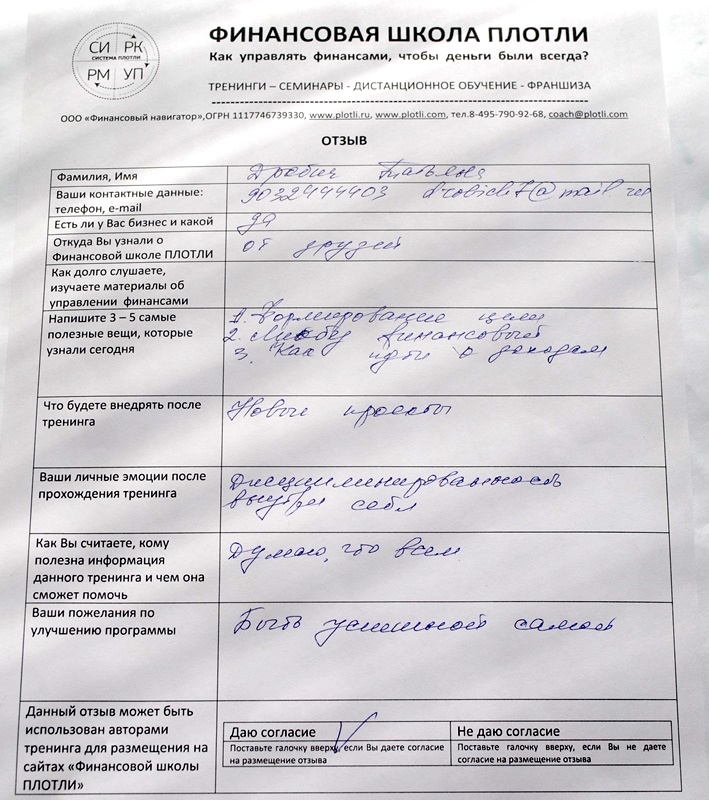 СИ РК
СИСТЕМА ПЛОТЛИ
РМ УП
ФИНАНСОВАЯ ШКОЛА ПЛОТЛИ
Как управлять финансами, чтобы деньги были всегда?
ТРЕНИНГИ – СЕМИНАРЫ - ДИСТАНЦИОННОЕ ОБУЧЕНИЕ - ФРАНШИЗА
ООО «Финансовый навигатор»,ОГРН 1117746739330, www.plotli.ru, www.plotli.com, тел.8-495-790-92-68, coach@plotli.com
ОТЗЫВ
Фамилия, Имя
Дробич Татьяна
Ваши контактные данные:
телефон, e-mail
9032444403 drobich7@mail ru
Есть ли у Вас бизнес и какой
да
Откуда Вы узнали о
Финансовой школе ПЛОТЛИ
от друзей
Как долго слушаете,
изучаете материалы об
управлении финансами
Напишите 3 – 5 самые
полезные вещи, которые
узнали сегодня
1. Формирование цели
2. финансовый
3. Как идти к доходам
Что будете внедрять после
тренинга
Новые проекты
Ваши личные эмоции после
прохождения тренинга
Дисциплинированность
внутри себя
Как Вы считаете, кому
полезна информация
данного тренинга и чем она
сможет помочь
Думаю, что всем
Ваши пожелания по
улучшению программы
Быть успешной самой
Данный отзыв может быть
использован авторами
тренинга для размещения на
сайтах «Финансовой школы
ПЛОТЛИ»
Даю согласие
Поставьте галочку вверху, если Вы даете согласие
на размещение отзыва
Не даю согласие
Поставьте галочку вверху, если Вы не даете
согласие на размещение отзыва